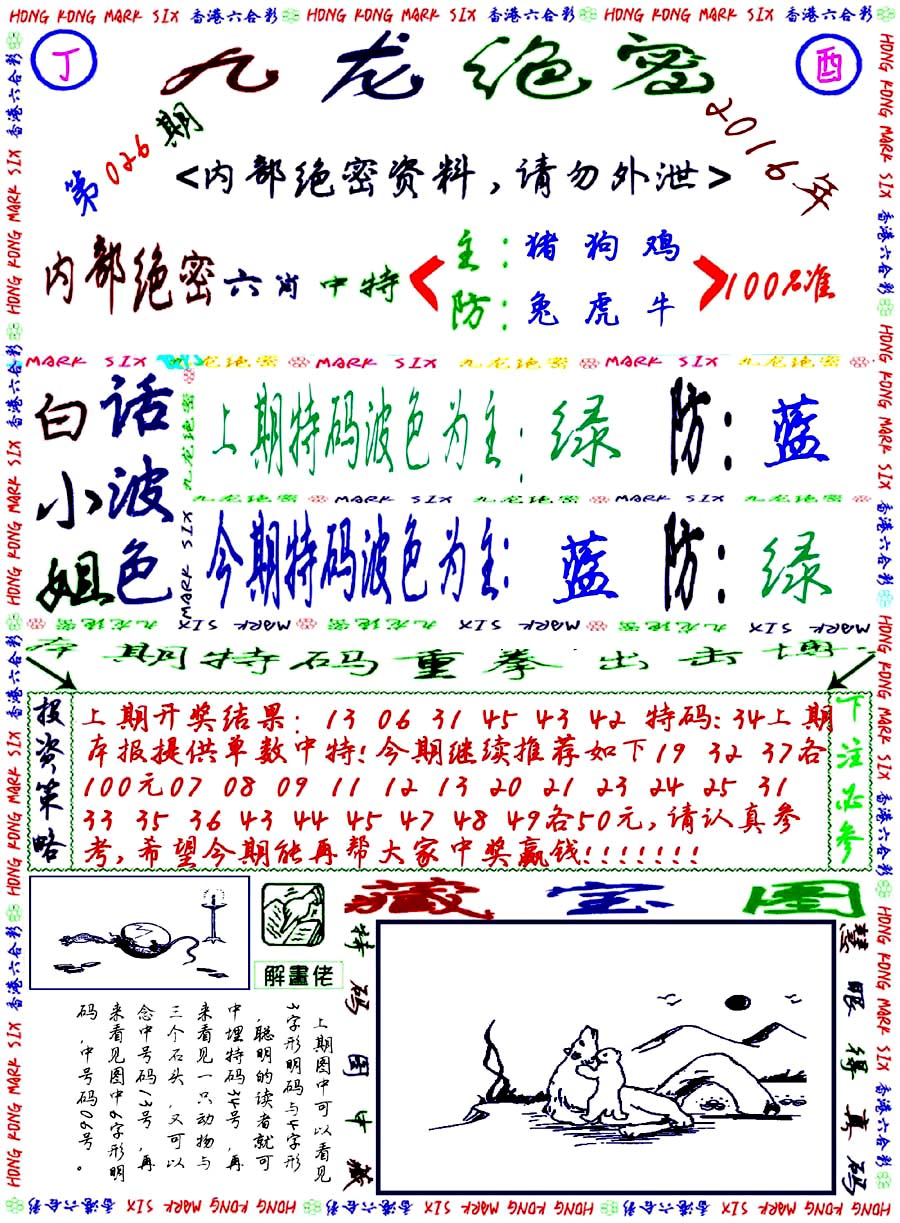 HONG KONG MARK SIX 香港六合彩 HONG KONG MARK SIX 香港六合彩 HONG KONG MARK SIX 香港六合彩
丁
九龙绝密
酉
第026期
2016年
<内部绝密资料,请勿外泄>
内部绝密六肖中特
主:猪狗鸡
防:兔虎牛
100%准
MARK SIX 九龙绝密 MARK SIX 九龙绝密 MARK SIX 九龙绝密
白小姐
话波色
上期特码波色为主:绿 防:蓝
九龙绝密 MARK SIX 九龙绝密 MARK SIX 九龙绝密
今期特码波色为主:蓝 防:绿
九龙绝密 MARK SIX 九龙绝密 MARK SIX 九龙绝密 MARK SIX
期特码重拳出击
投资策略
上期开奖结果: 13 06 31 45 43 42 特码:34上期
本报提供单数中特!今期继续推荐如下19 32 37各
100元07 08 09 11 12 13 20 21 23 24 25 31
33 35 36 43 44 45 47 48 49各50元,请认真参
考,希望今期能再帮大家中奖赢钱!!!!!!!
下注必参
藏宝图
解畫佬
特码图中藏
慧眼得真码
上期图中可以看见
3字形明码与4字形
,聪明的读者就可
中埋特码34号,再
来看见一只动物与
三个石头,又可以
念中号码13号,再
来看见图中6字形明
码,中号码06号。
HONG KONG MARK SIX 香港六合彩 HONG KONG MARK SIX 香港六合彩 HONG KONG MARK SIX 香港六合彩